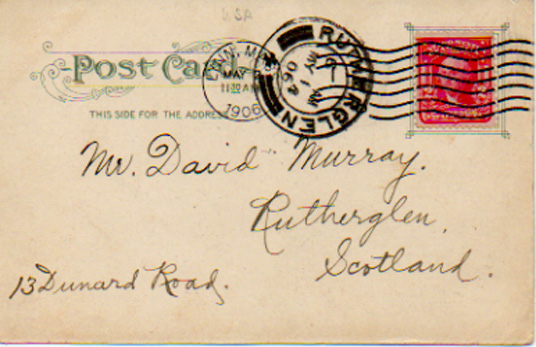 USA
Post Card
THIS SIDE FOR THE ADDRESS
LYNN, MASS
MAY
11:30 AM
1906
RUTHERGLEN
MY 14
06
Mr. David Murray.
Rutherglen
Scotland.
13 Dunard Road.